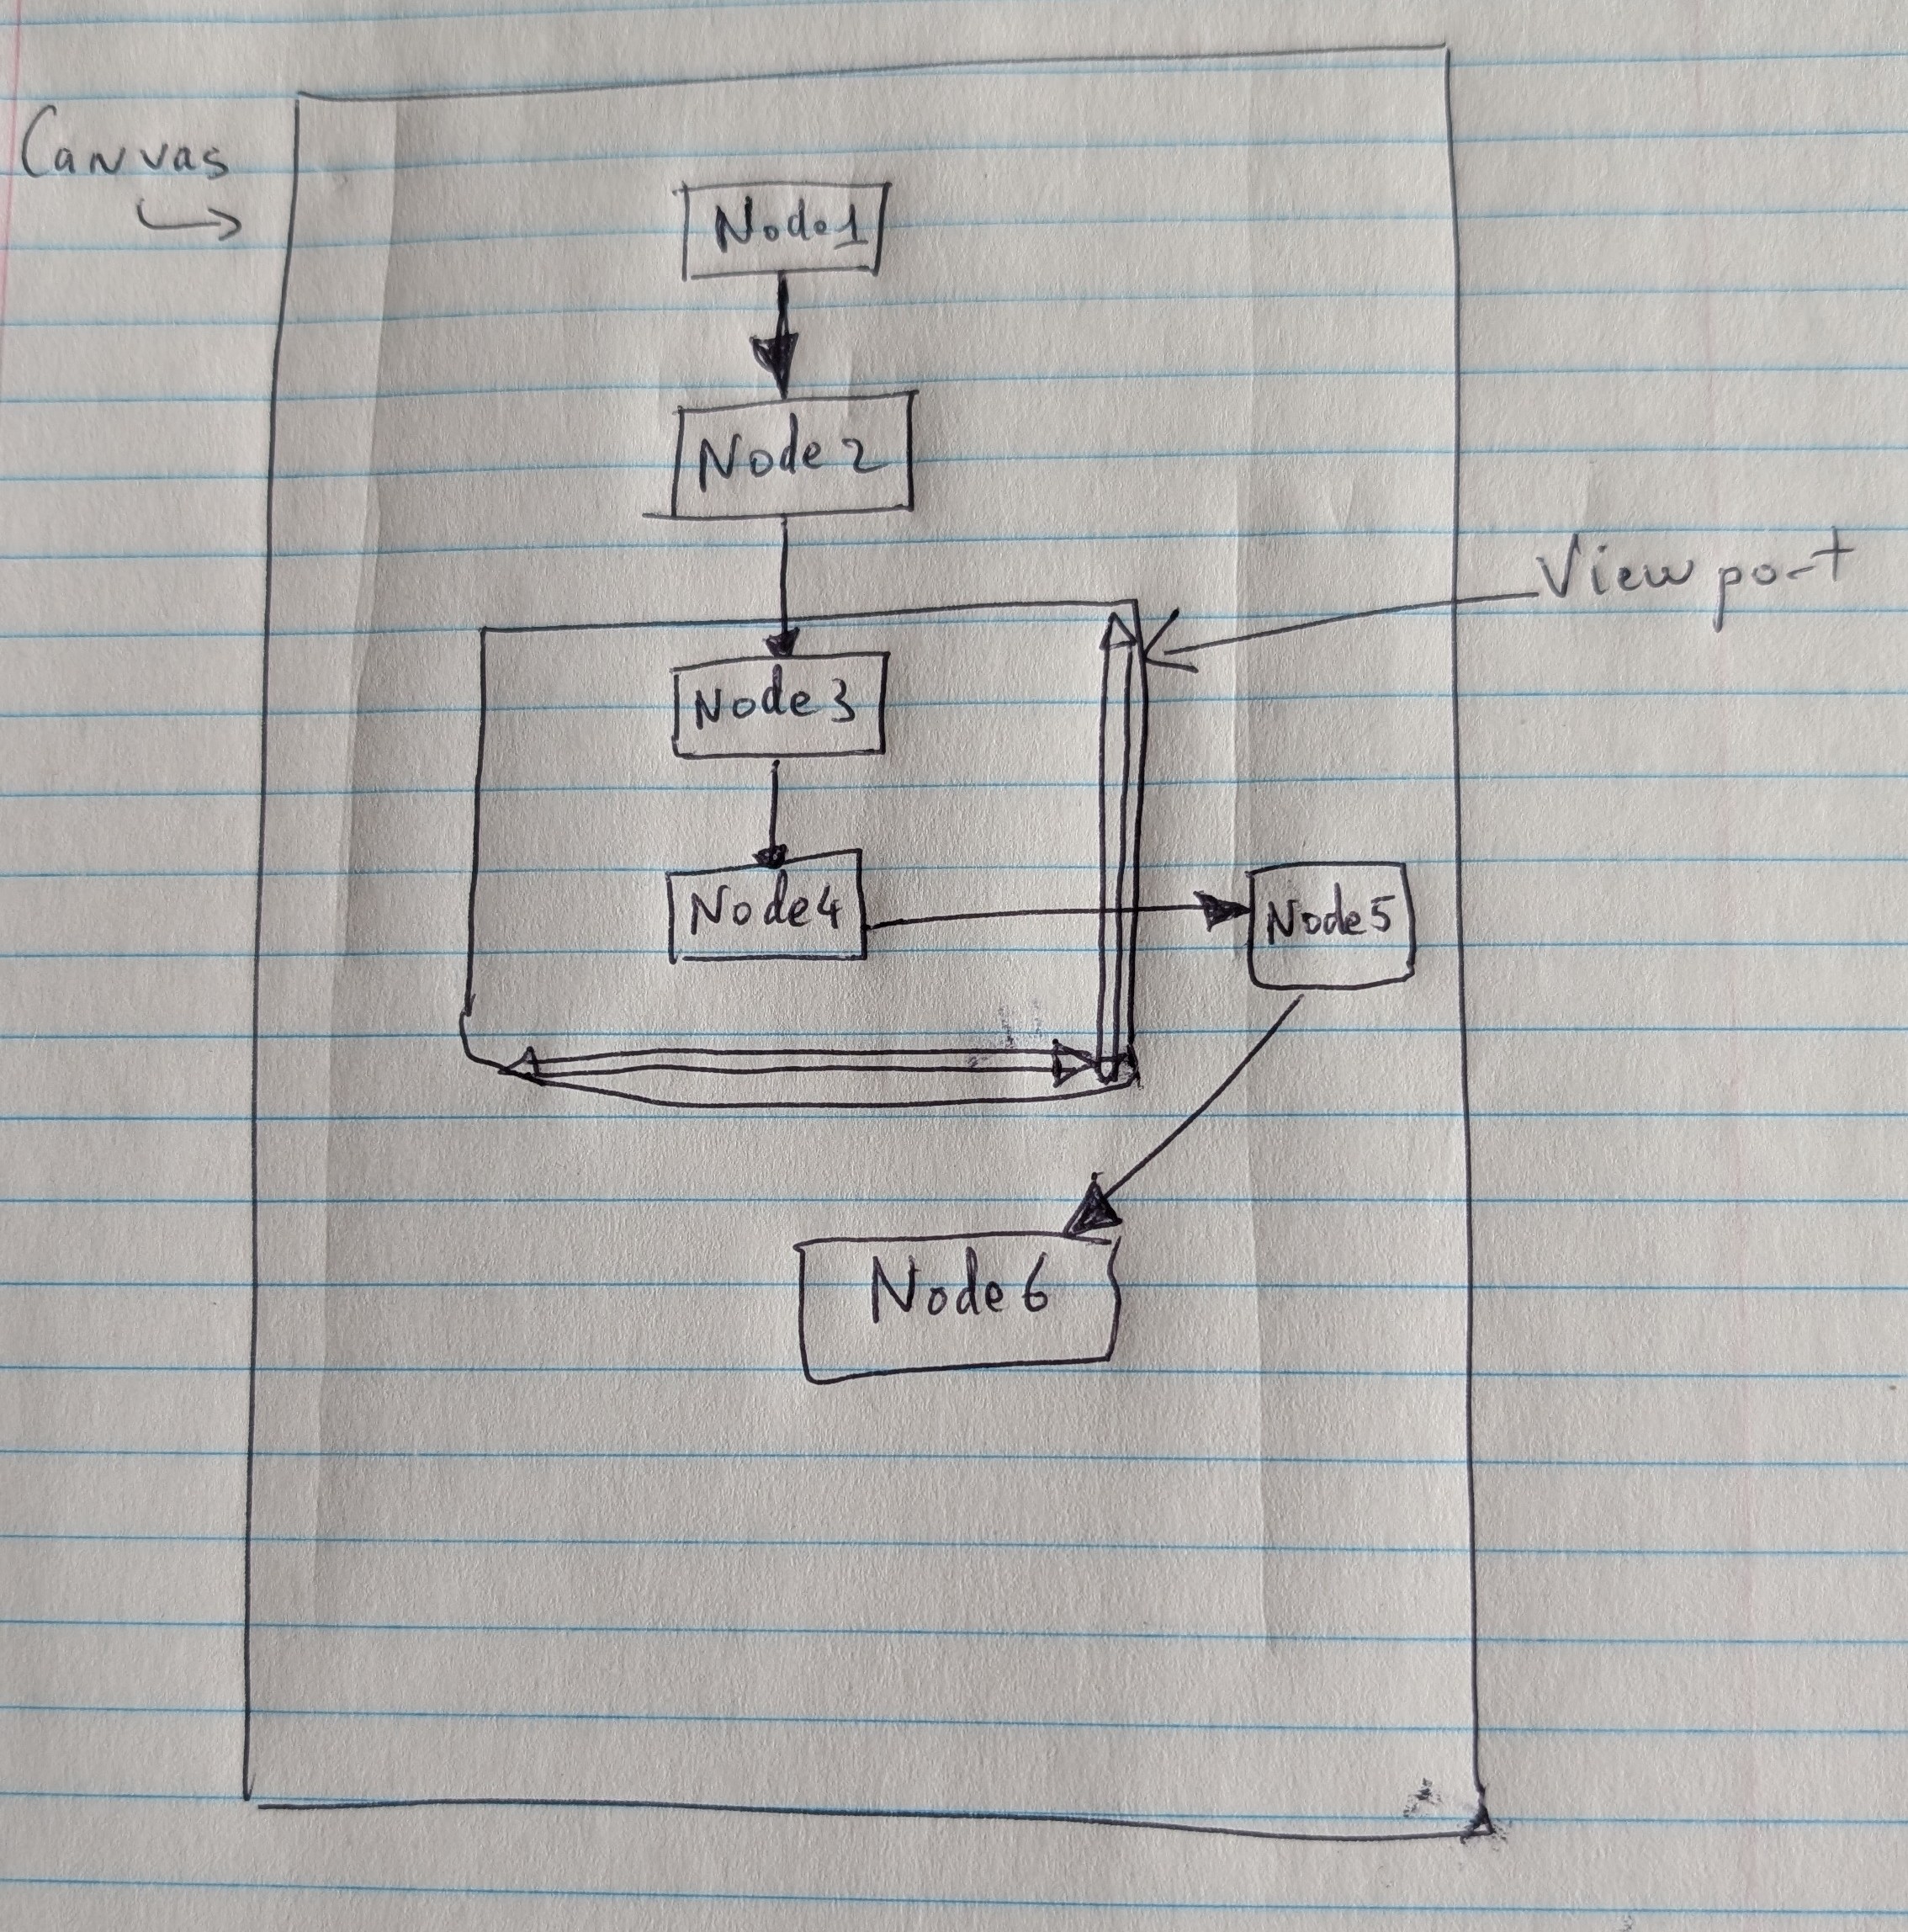 Canvas
Node1
Node 2
View port
Node 3
Node4
Node5
Node 6